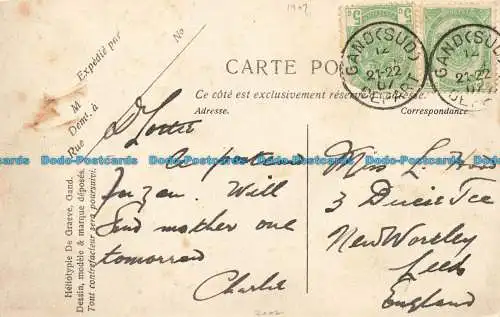 1907
No
Expédié par
M
Dem.t à
Rue
CARTE PO
Ce côté est exclusivement réservé
Adresse.
Correspondance.
5c 5c
GAND (SUD)
12
21-22
07
DEPART
GAND (SUD)
12
21-22
07
DEPART
D Lottie
a postcard
for you. Will
send mother one
tomorrow
Charlie
Miss L.
3 Terr
New Wortley
Leeds
England
Héliotypie De Graeve, Gand.
Dessin, modèle & marque déposés.
Tout contrefacteur sera poursuivi.
Dodo-Postcards Dodo-Postcards Dodo-Postcards Dodo-Postcards Dodo-Postcards Dodo-Postcards